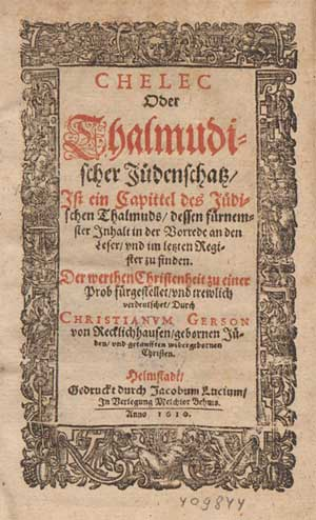 CHELEC
Oder
Thalmudi-
scher Jüdenschatz/
Ist ein Capittel des Jüdi-
schen Thalmuds/ dessen fürnem-
ster Inhalt in der Vorrede an den
Leser/ vnd im letzten Regi-
ster zu finden.
Der werthen Christenheit zu einer
Prob fürgestellet/ vnd trewlich
verdeutschet/ Durch
CHRISTIANVM GERSON
von Recklichhausen/ gebornen Jü-
den/ vnd getaufften widergebornen
Christen.
Helmstadt/
Gedruckt durch Jacobum Lucium/
In Verlegung Melchior Behms.
Anno 1610.
409844